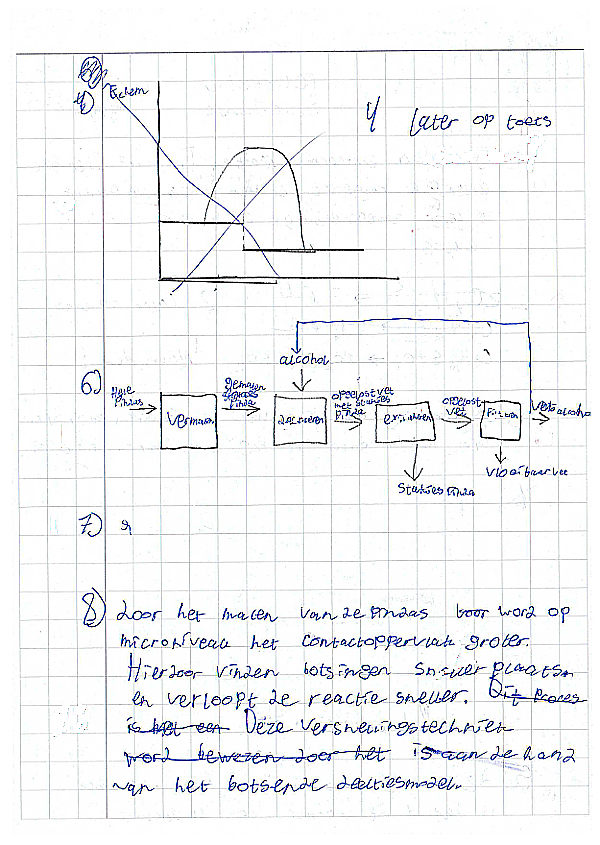 4)
Echem
4 Later op toets
6)
alcohol
Hele
Pindas
gemalen
Pinda
opgelost vet
met stukjes
pinda
opgelost
vet
Vet+alcohol
Vermalen
Filtreren
Stukjes Pinda
Vloeibaar vet
7)
8) door het malen van de Pindas door word op
microniveau het contactoppervlak groter.
Hierdoor vinden botsingen sneller plaats
en verloopt de reactie sneller. Dit Proces
is het een Deze versnellingstechniek
word bewezen door het is aan de hand
van het botsende deeltjesmodel.